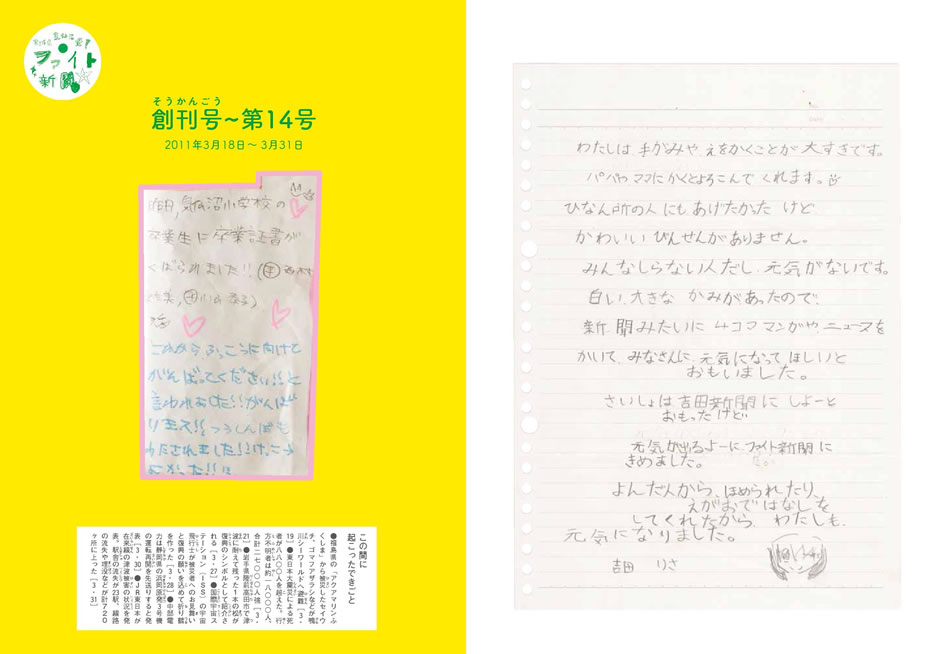 ファイト
新聞
そうかんごう
創刊号~第14号
2011年3月18日~ 3月31日
昨日,気仙沼小学校の
卒業生に卒業証書が
くばられました!!
これからふっこうに向けて
がんばってください!!と
言われました!!がんば
ります!!つうしんぼも
わたされました!!けっこう
よかった!!
この間に
起こったできごと
●福島県の「アクアマリンふ
くしま」から被災したセイウ
チ、ゴマフアザラシなどが鴨
川シーワールドへ避難[3・
19]●東日本大震災による死
者が八八〇〇人を超えた。行
方不明者は約一八〇〇〇人、
合計二七〇〇〇人強[3・
21]●岩手県陸前高田市で津
波に耐えて残った1本の松が
復興のシンボルとして紹介さ
れる[3・27]●国際宇宙ス
テーション(ISS)の宇宙
飛行士が被災者へのお見舞い
と復興の願いを込めて折り鶴
を作った[3・28]●中部電
力は静岡県の浜岡原発3号機
の運転再開を先送りすると発
表[3・30]●JR東日本が
在来線の津波被害の状況を発
表。駅舎の流失が23駅、線路
の流失や埋没などが計720
ヶ所に上った[3・31]
わたしは、手がみや、えをかくことが大すきです。
パパやママにかくとよろこんでくれます。
ひなん所の人にもあげたかったけど
かわいいびんせんがありません。
みんなしらない人だし、元気がないです。
白い、大きなかみがあったので、
新聞みたいに4コママンガや、ニュースを
かいて、みなさんに、元気になってほしいと
おもいました。
さいしょは吉田新聞にしよーと
おもったけど
元気が出るよーにファイト新聞に
きめました。
よんだ人から、ほめられたり、
えがおではなしを
してくれたから、わたしも、
元気になりました。
吉田 りさ